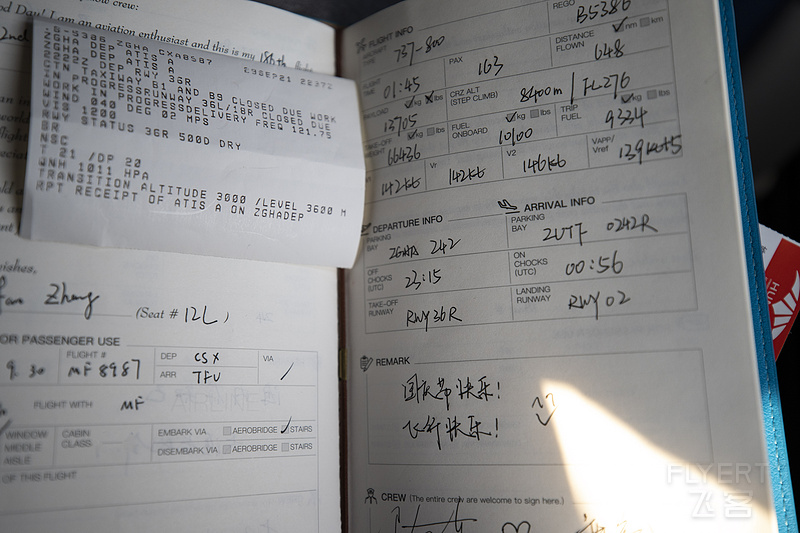 crew:
Day! I am an aviation enthusiast and this is my
B-5386 ZGHA CXA8587
29SEP21 2237Z
ZGHA DEP ATIS A
ZGHA DEP ATIS A
2222Z DEP RWY 36R
CTN TAXIWAY B1 AND B9 CLOSED DUE WORK
IN PROGRESSRUNWAY 36L/18R CLOSED DUE
WORK IN PROGRESSDELIVERY FREQ 121.75
WIND 040 DEG 02 MPS
VIS 1200
RWY STATUS 36R 500D DRY
BR
NSC
T 21 /DP 20
QNH 1011 HPA
TRANSITION ALTITUDE 3000 /LEVEL 3600 M
RPT RECEIPT OF ATIS A ON ZGHADEP
Zhang
(Seat # 12L)
OR PASSENGER USE
9.30
FLIGHT #
MF8987
DEP
CSX
VIA
ARR
TFU
FLIGHT WITH
MF
WINDOW
MIDDLE
AISLE
CABIN
CLASS
EMBARK VIA
AEROBRIDGE
STAIRS
DISEMBARK VIA
AEROBRIDGE
STAIRS
OF THIS FLIGHT
FLIGHT INFO
737-800
REGO
B5386
FLIGHT
TIME
01:45
PAX
163
DISTANCE
FLOWN
nm
km
648
PAYLOAD
kg
lbs
13705
CRZ ALT
(STEP CLIMB)
8400m / FL276
TAKE-OFF
WEIGHT
kg
lbs
66436
FUEL
ONBOARD
kg
lbs
10100
TRIP
FUEL
kg
lbs
9334
142kt
Vr
142kt
V2
146kt
VAPP/
Vref
139kt+5
DEPARTURE INFO
PARKING
BAY
ZGHA 242
OFF
CHOCKS
(UTC)
23:15
TAKE-OFF
RUNWAY
RWY36R
ARRIVAL INFO
PARKING
BAY
ZUTF 0242R
ON
CHOCKS
(UTC)
00:56
LANDING
RUNWAY
RWY02
REMARK
国庆节快乐!
飞行快乐!
CREW (The entire crew are welcome to sign here.)
FLYERT
飞客